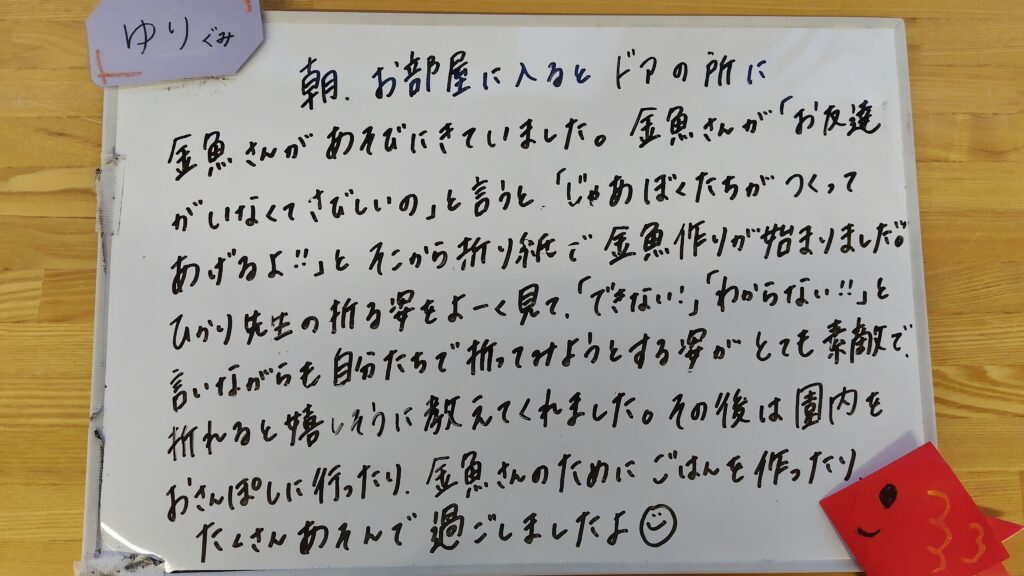 ゆりぐみ
朝、お部屋に入るとドアの所に
金魚さんがあそびにきていました。金魚さんが「お友達
がいなくてさびしいの」と言うと、「じゃあぼくたちがつくって
あげるよ!!」とそこから折り紙で金魚作りが始まりました。
ひかり先生の折る姿をよーく見て、「できない!」「わからない!!」と
言いながらも自分たちで折ってみようとする姿がとても素敵で、
折れると嬉しそうに教えてくれました。その後は園内を
おさんぽしに行ったり、金魚さんのためにごはんを作ったり、
たくさんあそんで過ごしましたよ☺